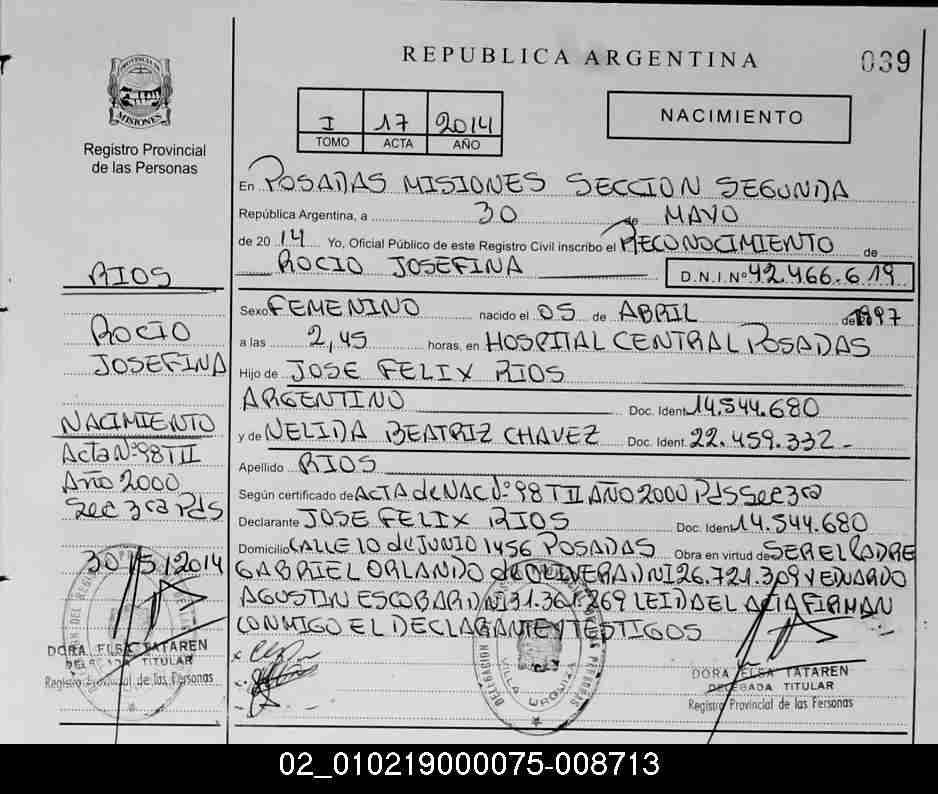 REPUBLICA ARGENTINA
039
PROVINCIA DE
MISIONES
Registro Provincial
de las Personas
I 17 2014
TOMO ACTA AÑO
NACIMIENTO
En POSADAS MISIONES SECCION SEGUNDA
República Argentina, a 30 de MAYO
de 20 14 Yo, Oficial Público de este Registro Civil inscribo el RECONOCIMIENTO de
ROCIO JOSEFINA D.N.I.Nº 42.466.619
Sexo FEMENINO nacido el 05 de ABRIL de 1997
a las 2,45 horas, en HOSPITAL CENTRAL POSADAS
Hijo de JOSE FELIX RIOS
ARGENTINO Doc. Ident 14.544.680
y de NELIDA BEATRIZ CHAVEZ Doc. Ident. 22.459.332 -
Apellido RIOS
Según certificado de ACTA de NAC Nº 98 T II AÑO 2000 Pds Sec 3ra
Declarante JOSE FELIX RIOS Doc. Ident 14.544.680
Domicilio CALLE 10 de JUNIO 1456 POSADAS Obra en virtud de SER EL PADRE
GABRIEL ORLANDO de OLIVERA DNI 26.721.309 Y EDUARDO
AGUSTIN ESCOBAR DNI 31.361.269 LEIDA EL ACTA FIRMAN
CONMIGO EL DECLARANTE Y TESTIGOS
RIOS
ROCIO
JOSEFINA
NACIMIENTO
Acta Nº 98 T II
Año 2000
Sec 3ra Pds
30/5/2014
DORA ELSA TATAREN
DELEGADA TITULAR
Registro Provincial de las Personas
DELEGACION
VILLA URQUIZA
PERSONAS
DORA ELSA TATAREN
DELEGADA TITULAR
Registro Provincial de las Personas
02_010219000075-008713